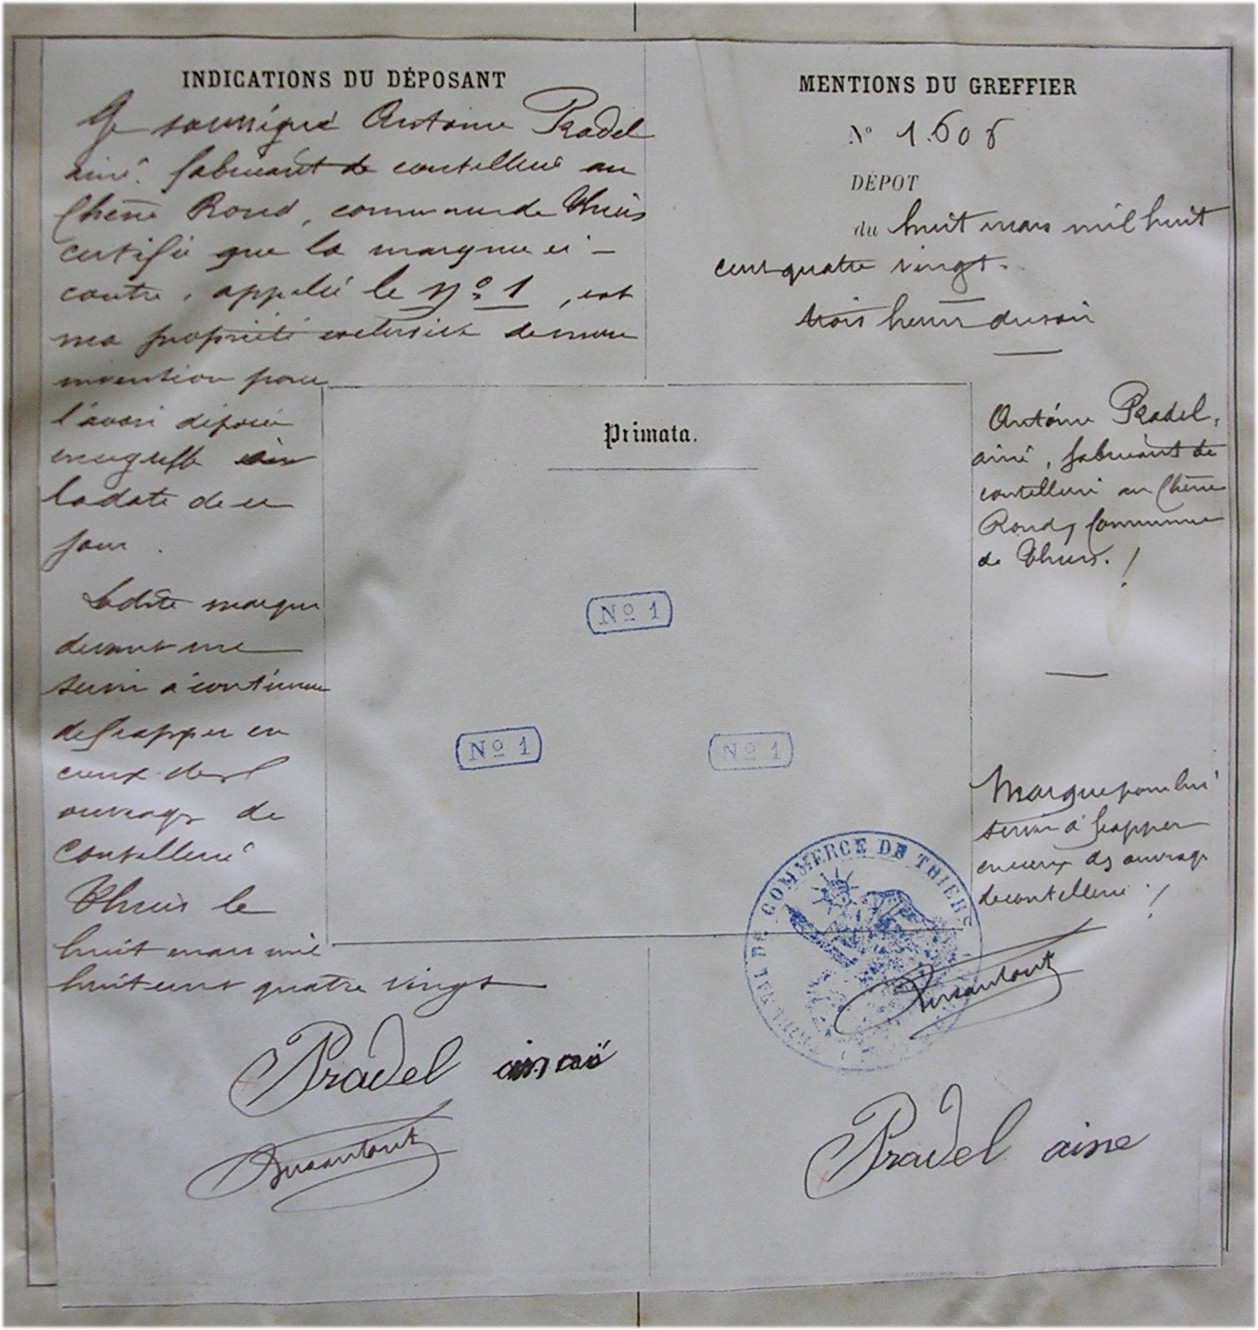 INDICATIONS DU DÉPOSANT
Je soussigné Antoine Pradel
ainé fabricant de coutellerie au
Chêne Rond, commune de Thiers
certifie que la marque ci-
contre, appelée le No 1, est
ma propriété exclusive de mon
invention pour
l'avoir déposée
au greffe
la date de ce
jour.
Ladite marque
devant me
servir à continuer
de frapper en
creux des
ouvrages de
coutellerie
Thiers le
huit mars mil
huit cent quatre vingt
Pradel ainé
MENTIONS DU GREFFIER
No 1.606
DÉPOT
du huit mars mil huit
cent quatre vingt.
trois heures du soir
Primata.
No 1
No 1
No 1
Antoine Pradel,
ainé, fabricant de
coutellerie au Chêne
Rond, Commune
de Thiers. /
Marque pour lui
servir à frapper
en creux des ouvrages
de coutellerie. /
TRIBUNAL DE COMMERCE DE THIERS
Pradel aine